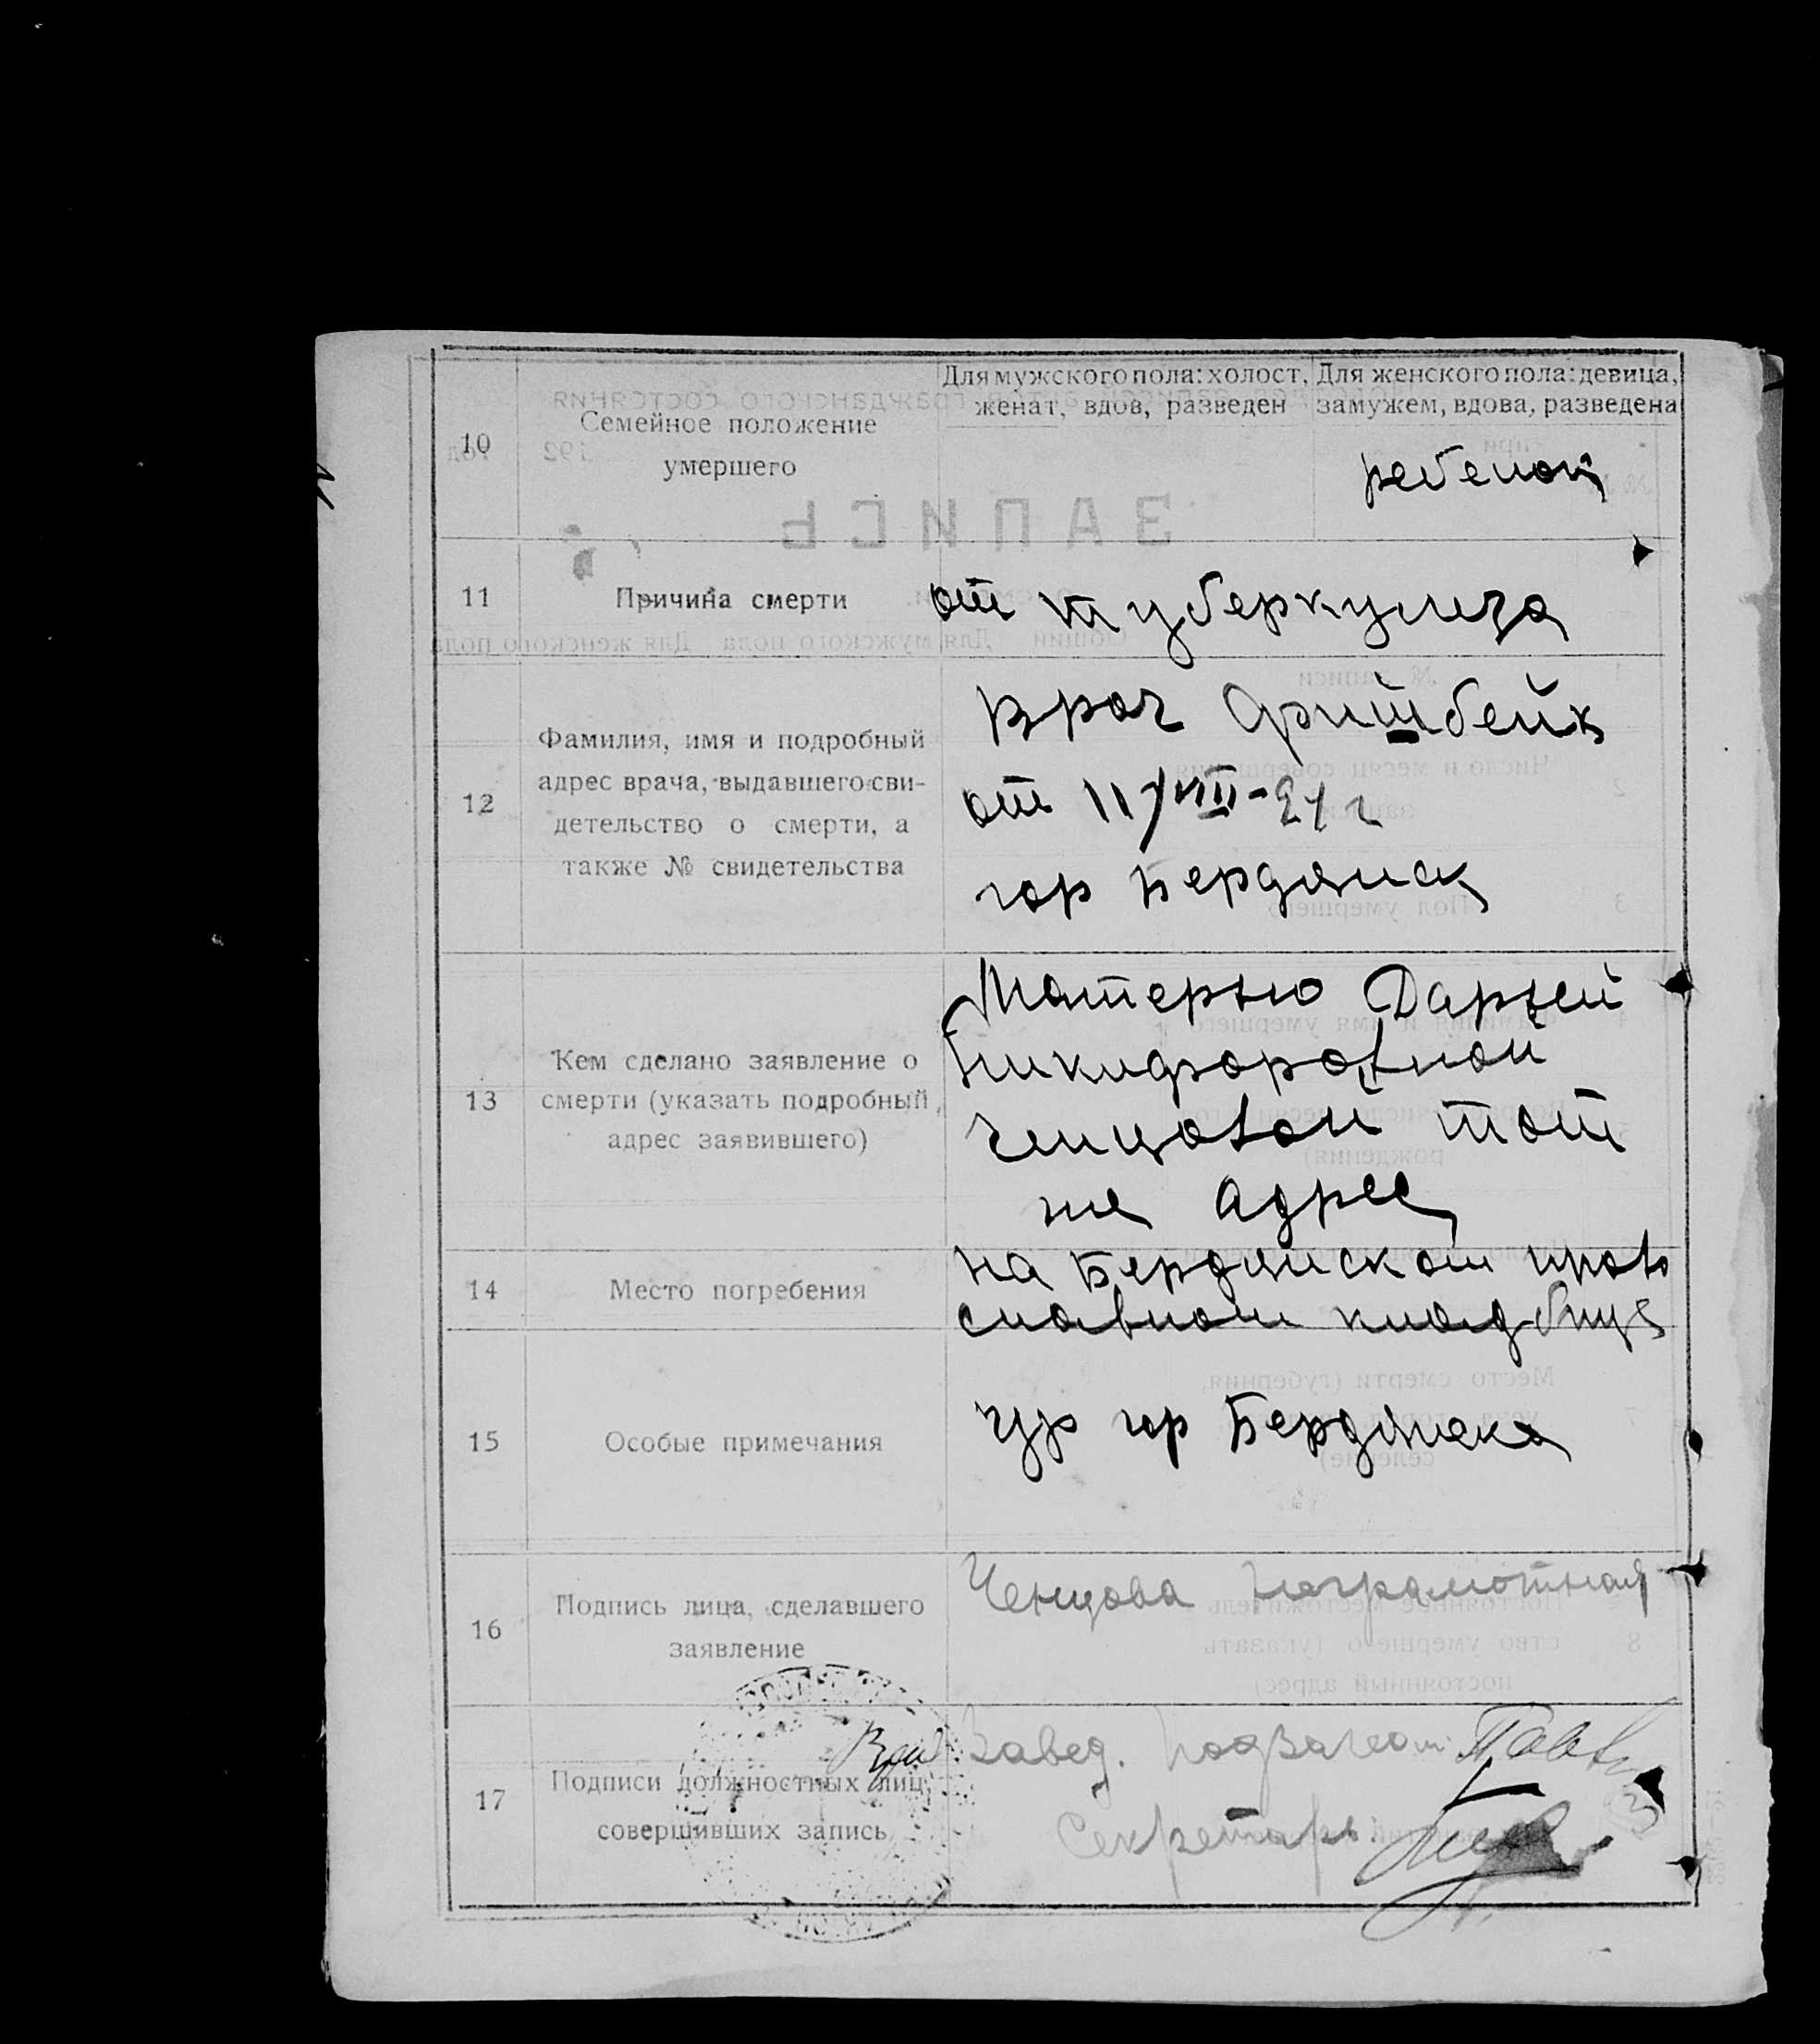 Для мужского пола: холост, женат, вдов, разведен
Для женского пола: девица, замужем, вдова, разведена
10
Семейное положение
умершего
ребенок
11
Причина смерти
от туберкулеза
12
Фамилия, имя и подробный
адрес врача, выдавшего сви-
детельство о смерти, а
также № свидетельства
врач
от 11/VIII-21 г
гор Бердянск
13
Кем сделано заявление о
смерти (указать подробный
адрес заявившего)
Матерью Дарьей
Никифоровной
Ченцовой тот
же адрес
14
Место погребения
на Бердянском право
славном кладбище
15
Особые примечания
гр гор Бердянска
16
Подпись лица, сделавшего
заявление
Ченцова неграмотная
17
Подписи должностных лиц,
совершивших запись
Завед. Подзагсом
Секретарь: